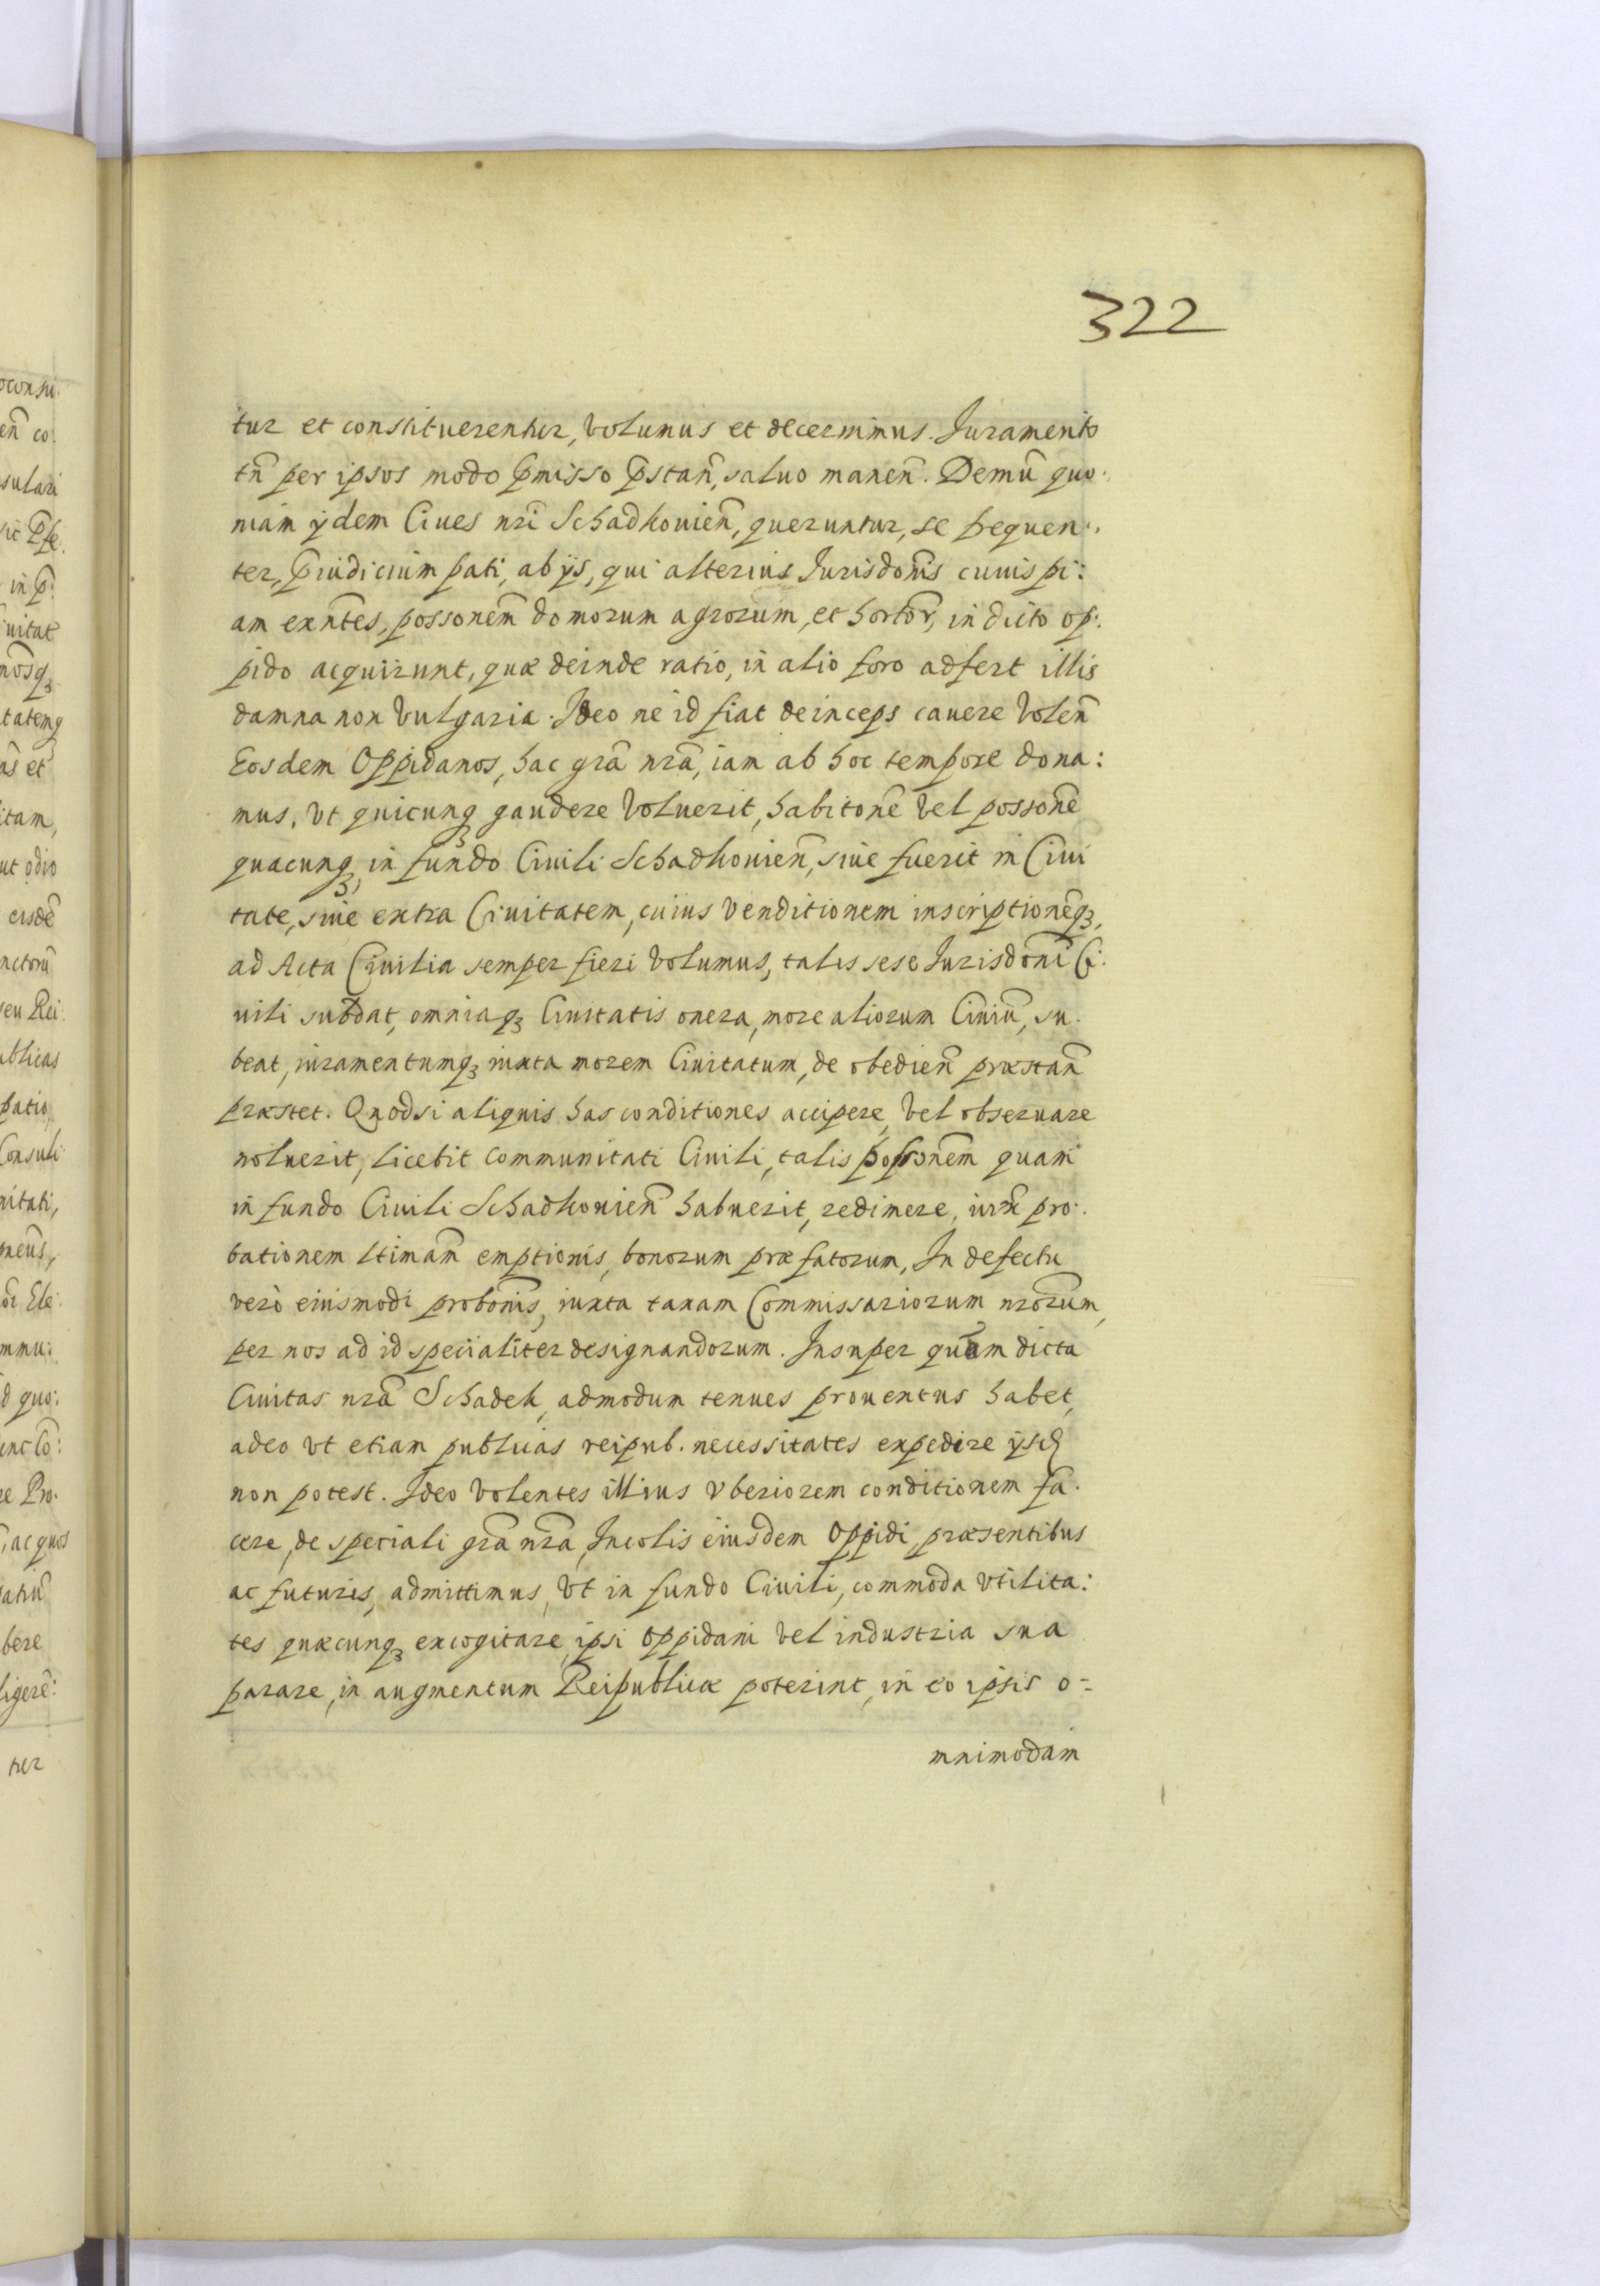 322
tur et constituerentur, volumus et decernimus. Juramento
tñ per ipsos modo p̃misso p̃stañ, saluo maneñ. Demũ quo-
niam ÿdem Ciues nrĩ Schadkovieñ, queruntur, se frequen-
ter, p̃iudicium pati, ab ÿs, qui alterius Jurisdonĩs cuiuspi:
am exñtes, possonem̃ domorum agrorum, et hortor̃, in dicto op:
pido acquirunt, quæ deinde ratio, in alio foro adfert illis
damna non vulgaria. Ideo ne id fiat deinceps cauere voleñ
Eosdem Oppidanos, hac grã nrã, iam ab hoc tempore dona:
mus, vt quicunqꝫ gaudere voluerit, habitonẽ vel possonẽ
quacunqꝫ, in fundo Ciuili Schadkovieñ, siue fuerit in Ciui
tate, siue extra Ciuitatem, cuius venditionem inscriptionẽqꝫ,
ad Acta Ciuilia semper fieri volumus, talis sese Jurisdonĩ Ci:
uili subdat, omniaqꝫ Ciuitatis onera, more aliorum Ciuiũ, su-
beat, iuramentumqꝫ iuxta morem Ciuitatum, de obedieñ præstañ
præstet. Quodsi aliquis has conditiones accipere, vel obseruare
noluerit, licebit Communitati Ciuili, talis possonem̃ quam
in fundo Ciuili Schadkovieñ habuerit, redimere, iuxᷓ pro:
bationem ltimam̃ emptionis, bonorum præfatorum, In defectu
verò eiusmodi probonĩs, iuxta taxam Commissariorum nrõrum,
per nos ad id specialiter designandorum. Insuper quam dicta
Ciuitas nrã Schadek, admodum tenues prouentus habet,
adeo vt etiam publicas reipub. necessitates expedire
non potest. Ideo volentes illius vberiorem conditionem fa-
cere, de speciali grã nrã, Incolis eiusdem Oppidi præsentibus
ac futuris, admittimus, vt in fundo Ciuili, commoda vtilita:
tes quæcunqꝫ excogitare, ipsi Oppidani vel industria sua
parare, in augmentum Reipublicæ poterint, in eo ipsis o-
mnimodam